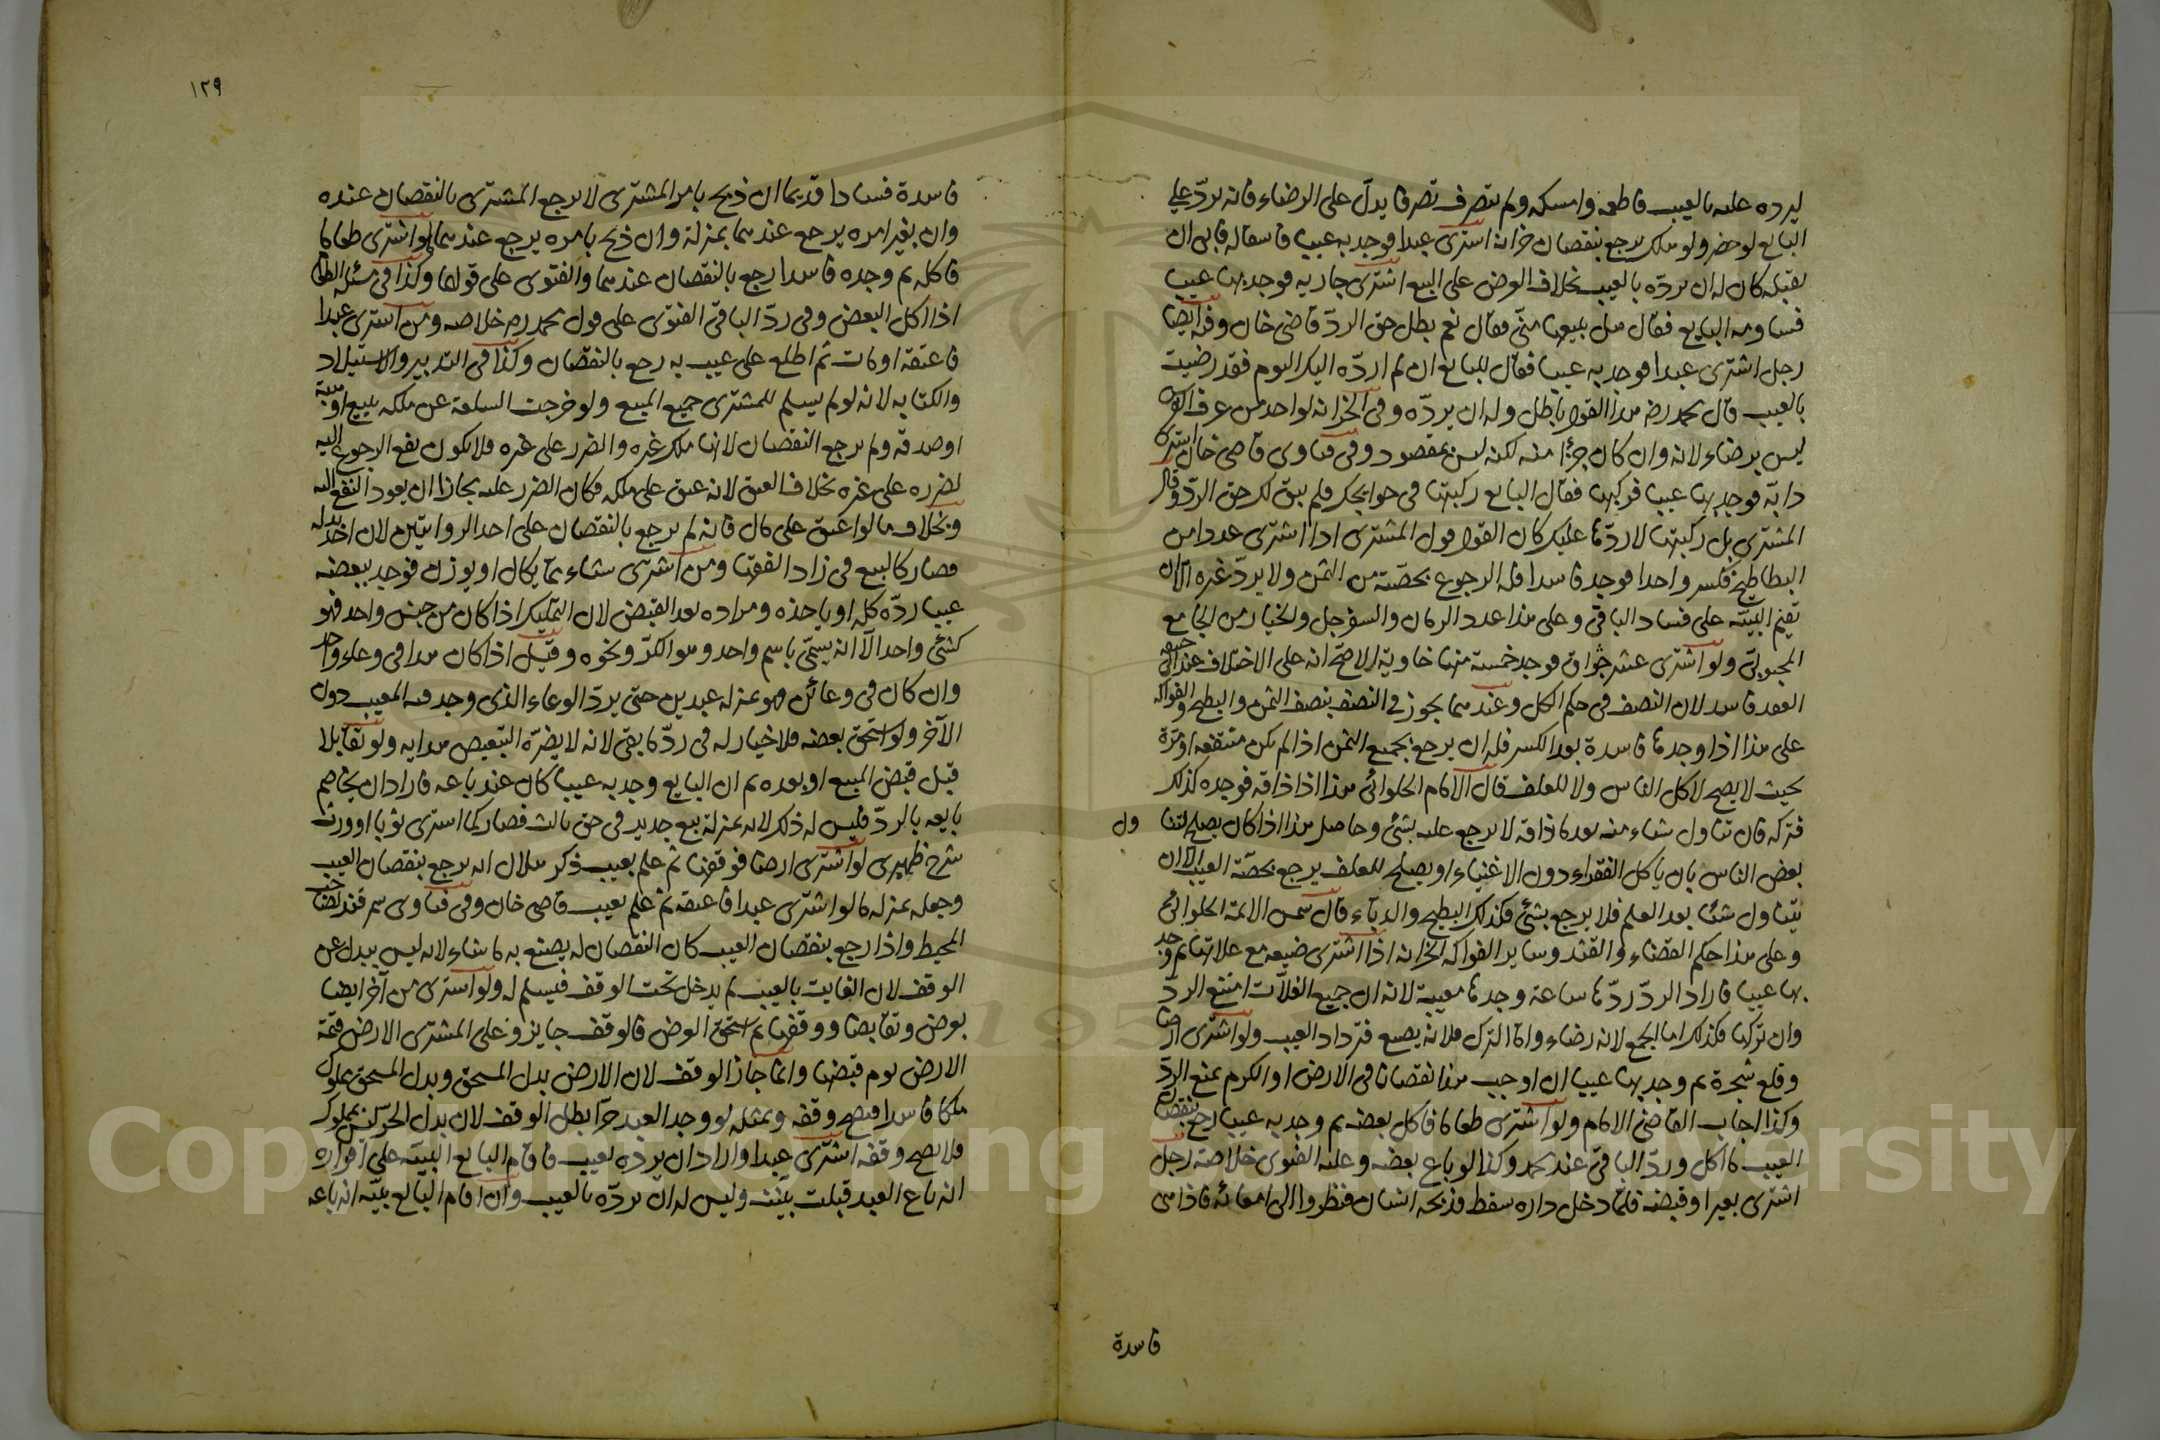 ليرده عليه بالعيب فاطعمه وامسكه ولم يتصرف تصرفا يدل على الرضاء فانه يردّ على
البايع لو حضر ولو هلك يرجع بنقصان خزانه اشترى عبدا فوجد به عيبا فاستقاله فابى ان
يقبله كان له ان يردّه بالعيب بخلاف العرض على البيع اشترى جاريه فوجد بها عيب
فساومه البايع فقال هل تبيعها منّى فقال نعم بطل حق الردّ قاضى خان وفيه ايضا
رجل اشترى عبدا فوجد به عيبا فقال للبايع ان لم اردّه اليك اليوم فقد رضيت
بالعيب قال محمد رحمه هذا القول باطل وله ان يردّه وفى الخزانه لو احد من عرف
ليس برضاء لانه وان كان جزءا منه لكنه ليس بمقصود وفى فتاوى قاضى خان اشترى
دابّه فوجد بها عيبا فركبها فقال البايع ركبتها فى حوايجك فلم يبق لك حق الردّ وقال
المشترى بل ركبتها لاردّها عليك كان القول قول المشترى اذا اشترى عددا من
البطاطيخ فكسر واحدا فوجد فاسدا فله الرجوع بحصّته من الثمن ولا يردّ غيره الا ان
يقيم البيّنه على فساد الباقى وعلى هذا عدد الرمان والسفرجل والخيار من الجامع
المحبوبىّ ولو اشترى عشر جوزات فوجد خمسة منها خاوية الاصحّ انه على الاختلاف عند ابى حنيفه
العقد فاسد لان النصف فى حكم الكل وعندهما يجوز فى النصف بنصف الثمن والبطيخ والفواكه
على هذا اذا وجدها فاسدة بعد الكسر فله ان يرجع بجميع الثمن اذا لم يكن منتفعه او مرّة
بحيث لا يصح لاكل الناس ولا للعلف قال الامام الحلوائى هذا اذا ذاقه فوجده كذلك
فتركه فان تناول شاء منه بعد ما ذاقه لا يرجع عليه بشئ وحاصل هذا اذا كان يصلح لتنا
ول
بعض الناس بان ياكل الفقراء دون الاغنياء او يصلح للعلف يرجع بحصّة العيب الا ان
يتناول شيئا بعد العلم فلا يرجع بشئ فكذلك البطيخ والدباء قال شمس الائمة الحلوائى
وعلى هذا حكم القثاء والقثد وساير الفواكه الخزانه اذا اشترى ضيعه مع غلاتها ثم وجد
بها عيبا فاراد الردّ ردّها ساعة وجدها معيبة لانه ان جمع الغلاّت امتنع الردّ
وان تركها فكذلك اما الجمع لانه رضاء واما الترك فلانه يضيع فيزداد العيب ولو اشترى ارضا
وقلع شجرة ثم وجد بها عيبا ان اوجب هذا نقصانا فى الارض او الكرم يمنع الردّ
وكذا اجاب القاضى الامام ولو اشترى طعاما فاكل بعضه ثم وجد به عيبا رجع بنقصان
العيب ما اكل وردّ الباقى عند محمد وكذا لو باع بعضه وعليه الفتوى خلاصة رجل
اشترى بعيرا وقبضه فلمّا دخل داره سقط فذبحه انسان فنظروا الى امعائه فاذا هى
فاسدة
١٢٩
فاسدة فسادا قديما ان ذبح بامر المشترى لا يرجع المشترى بالنقصان عنده
وان بغير امره يرجع عندهما بمنزلة وان ذبح بامره يرجع عندهما لو اشترى طعاما
فاكله ثم وجده فاسدا رجع بالنقصان عندهما والفتوى على قولهما وكذا فى مسئلة الطعام
اذا اكل البعض وفى ردّ الباقى الفتوى على قول محمد رحمه خلاصه ومن اشترى عبدا
فاعتقه او مات ثم اطلع على عيب به رجع بالنقصان وكذا فى التدبير والاستيلاد
والكتابه لانه لو لم يسلم للمشترى جميع المبيع ولو خرجت السلعة عن ملكه ببيع او هبة
او صدقه ولم يرجع النقصان لانها ملك غيره والضرر على غيره فلا يكون نفع الرجوع اليه
لضرره على غيره بخلاف العتق لانه عتق على ملكه فكان الضرر عليه بجازا ان يعود النفع اليه
وبخلاف ما لو اعتق على مال فانه لم يرجع بالنقصان على احد الروايتين لان اخذ بدله
فصار كالبيع فى زاد الفقهاء ومن اشترى شيئا مما يكال او يوزن فوجد ببعضه
عيبا ردّه كله او ياخذه ومراده بعد القبض لان المكيل اذا كان من جنس واحد فهو
كشئ واحد الاّ انه يسمّى باسم واحد وهو الكرّ ونحوه وقيل اذا كان هذا فى وعاء واحد
وان كان فى وعائين فهو بمنزله عبدين حتى يردّ الوعاء الذى وجد فيه المعيب دون
الآخر ولو استحق بعضه فلا خيار له فى ردّ ما بقى لانه لا يضرّه التبعيض هدايه ولو تقايلا
قبل قبض المبيع او بعده ثم ان البايع وجد به عيبا كان عند باعه فاراد ان يخاصم
بايعه بالردّ فليس له ذلك لانه بمنزلة بيع جديد فى حق ثالث فصار كما اشترى ثوبا او ورث
شرح ظهيرى لو اشترى ارضا فوقفها ثم علم بعيب ذكر هلال انه يرجع بنقصان العيب
وجعله بمنزله ما لو اشترى عبدا فاعتقه ثم علم بعيب قاضى خان وفى فتاوى سمرقند
المحيط واذا رجع بنقصان العيب كان النقصان له يصنع به ما شاء لانه ليس ببدل عن
الوقف لان الفايت بالعيب لم يدخل تحت الوقف فيسلم له ولو اشترى من آخر ايضا
بعرض وتقابضا ووقفها ثم استحق العرض فالوقف جايز وعلى المشترى الارض قيمة
الارض يوم قبضها وانما جاز الوقف لان الارض بدل المستحق وبدل المستحق مملوك
ملكا فاسدا فيصح وقفه وبمثله لو وجد العبد حرّا بطل الوقف لان بدل الحرّ ليس بمملوك
فلا يصح وقفه اشترى عبدا واراد ان يردّه بعيب فاقام البايع البيّنه على اقراره
انه باع العبد قبلت بيّنته وليس له ان يردّه بالعيب وان اقام البايع بيّنه انه باعه